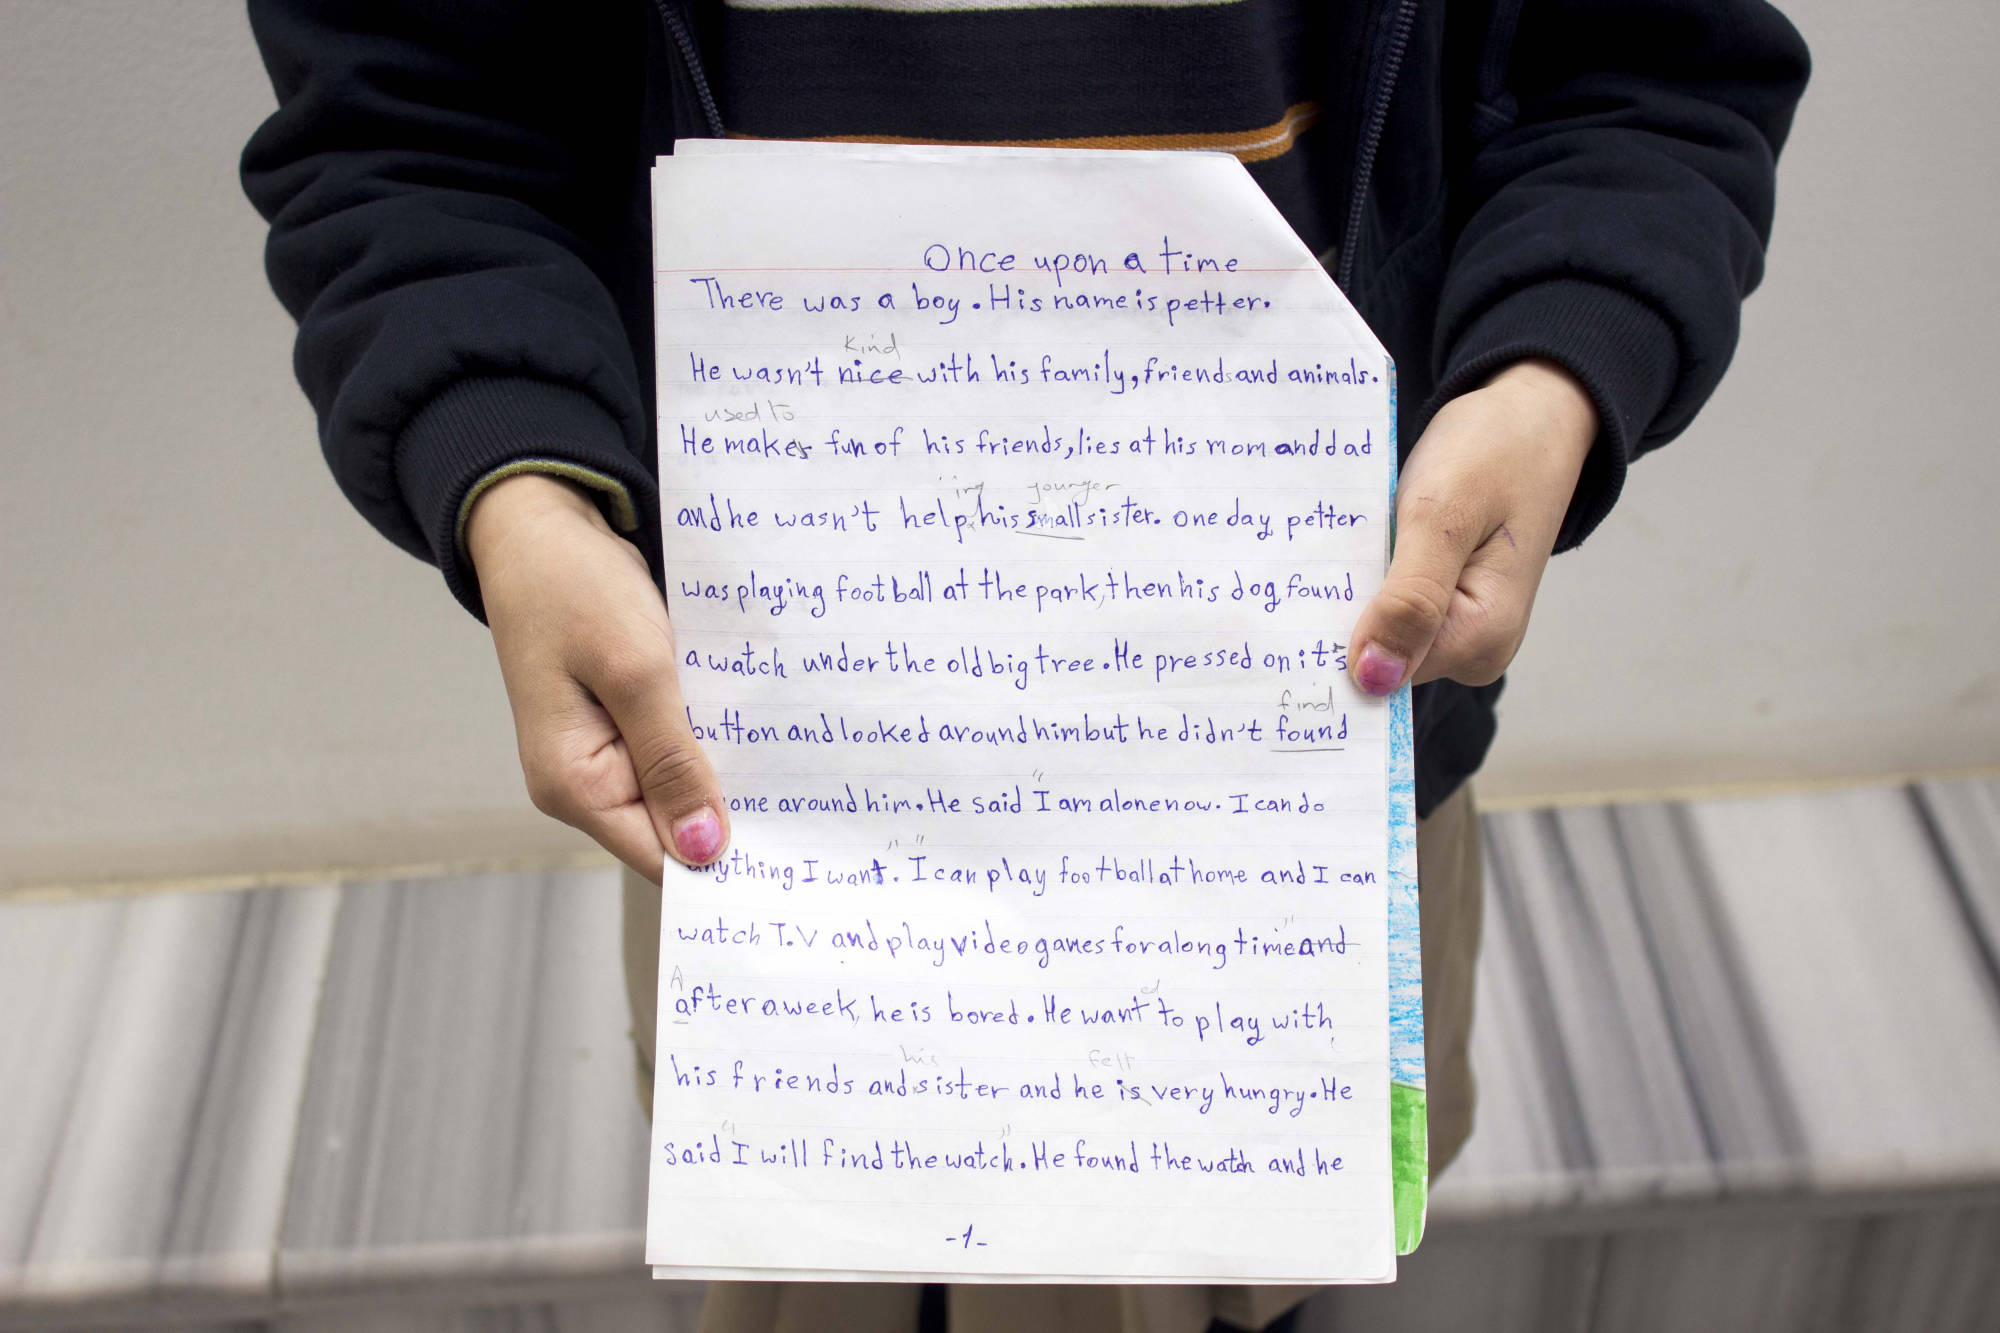 Once upon a time
There was a boy. His name is petter.
kind
He wasn't nice with his family, friends and animals.
used to
He makes fun of his friends, lies at his mom and dad
ing younger
and he wasn't help his small sister. One day petter
was playing football at the park, then his dog found
a watch under the old big tree. He pressed on it's
find
button and looked around him but he didn't found
one around him. He said "I am alone now. I can do
anything I want". "I can play football at home and I can
watch T.V and play video games for along time" and
A ed
after a week, he is bored. He want to play with
his felt
his friends and sister and he is very hungry. He
said "I will find the watch". He found the watch and he
-1-